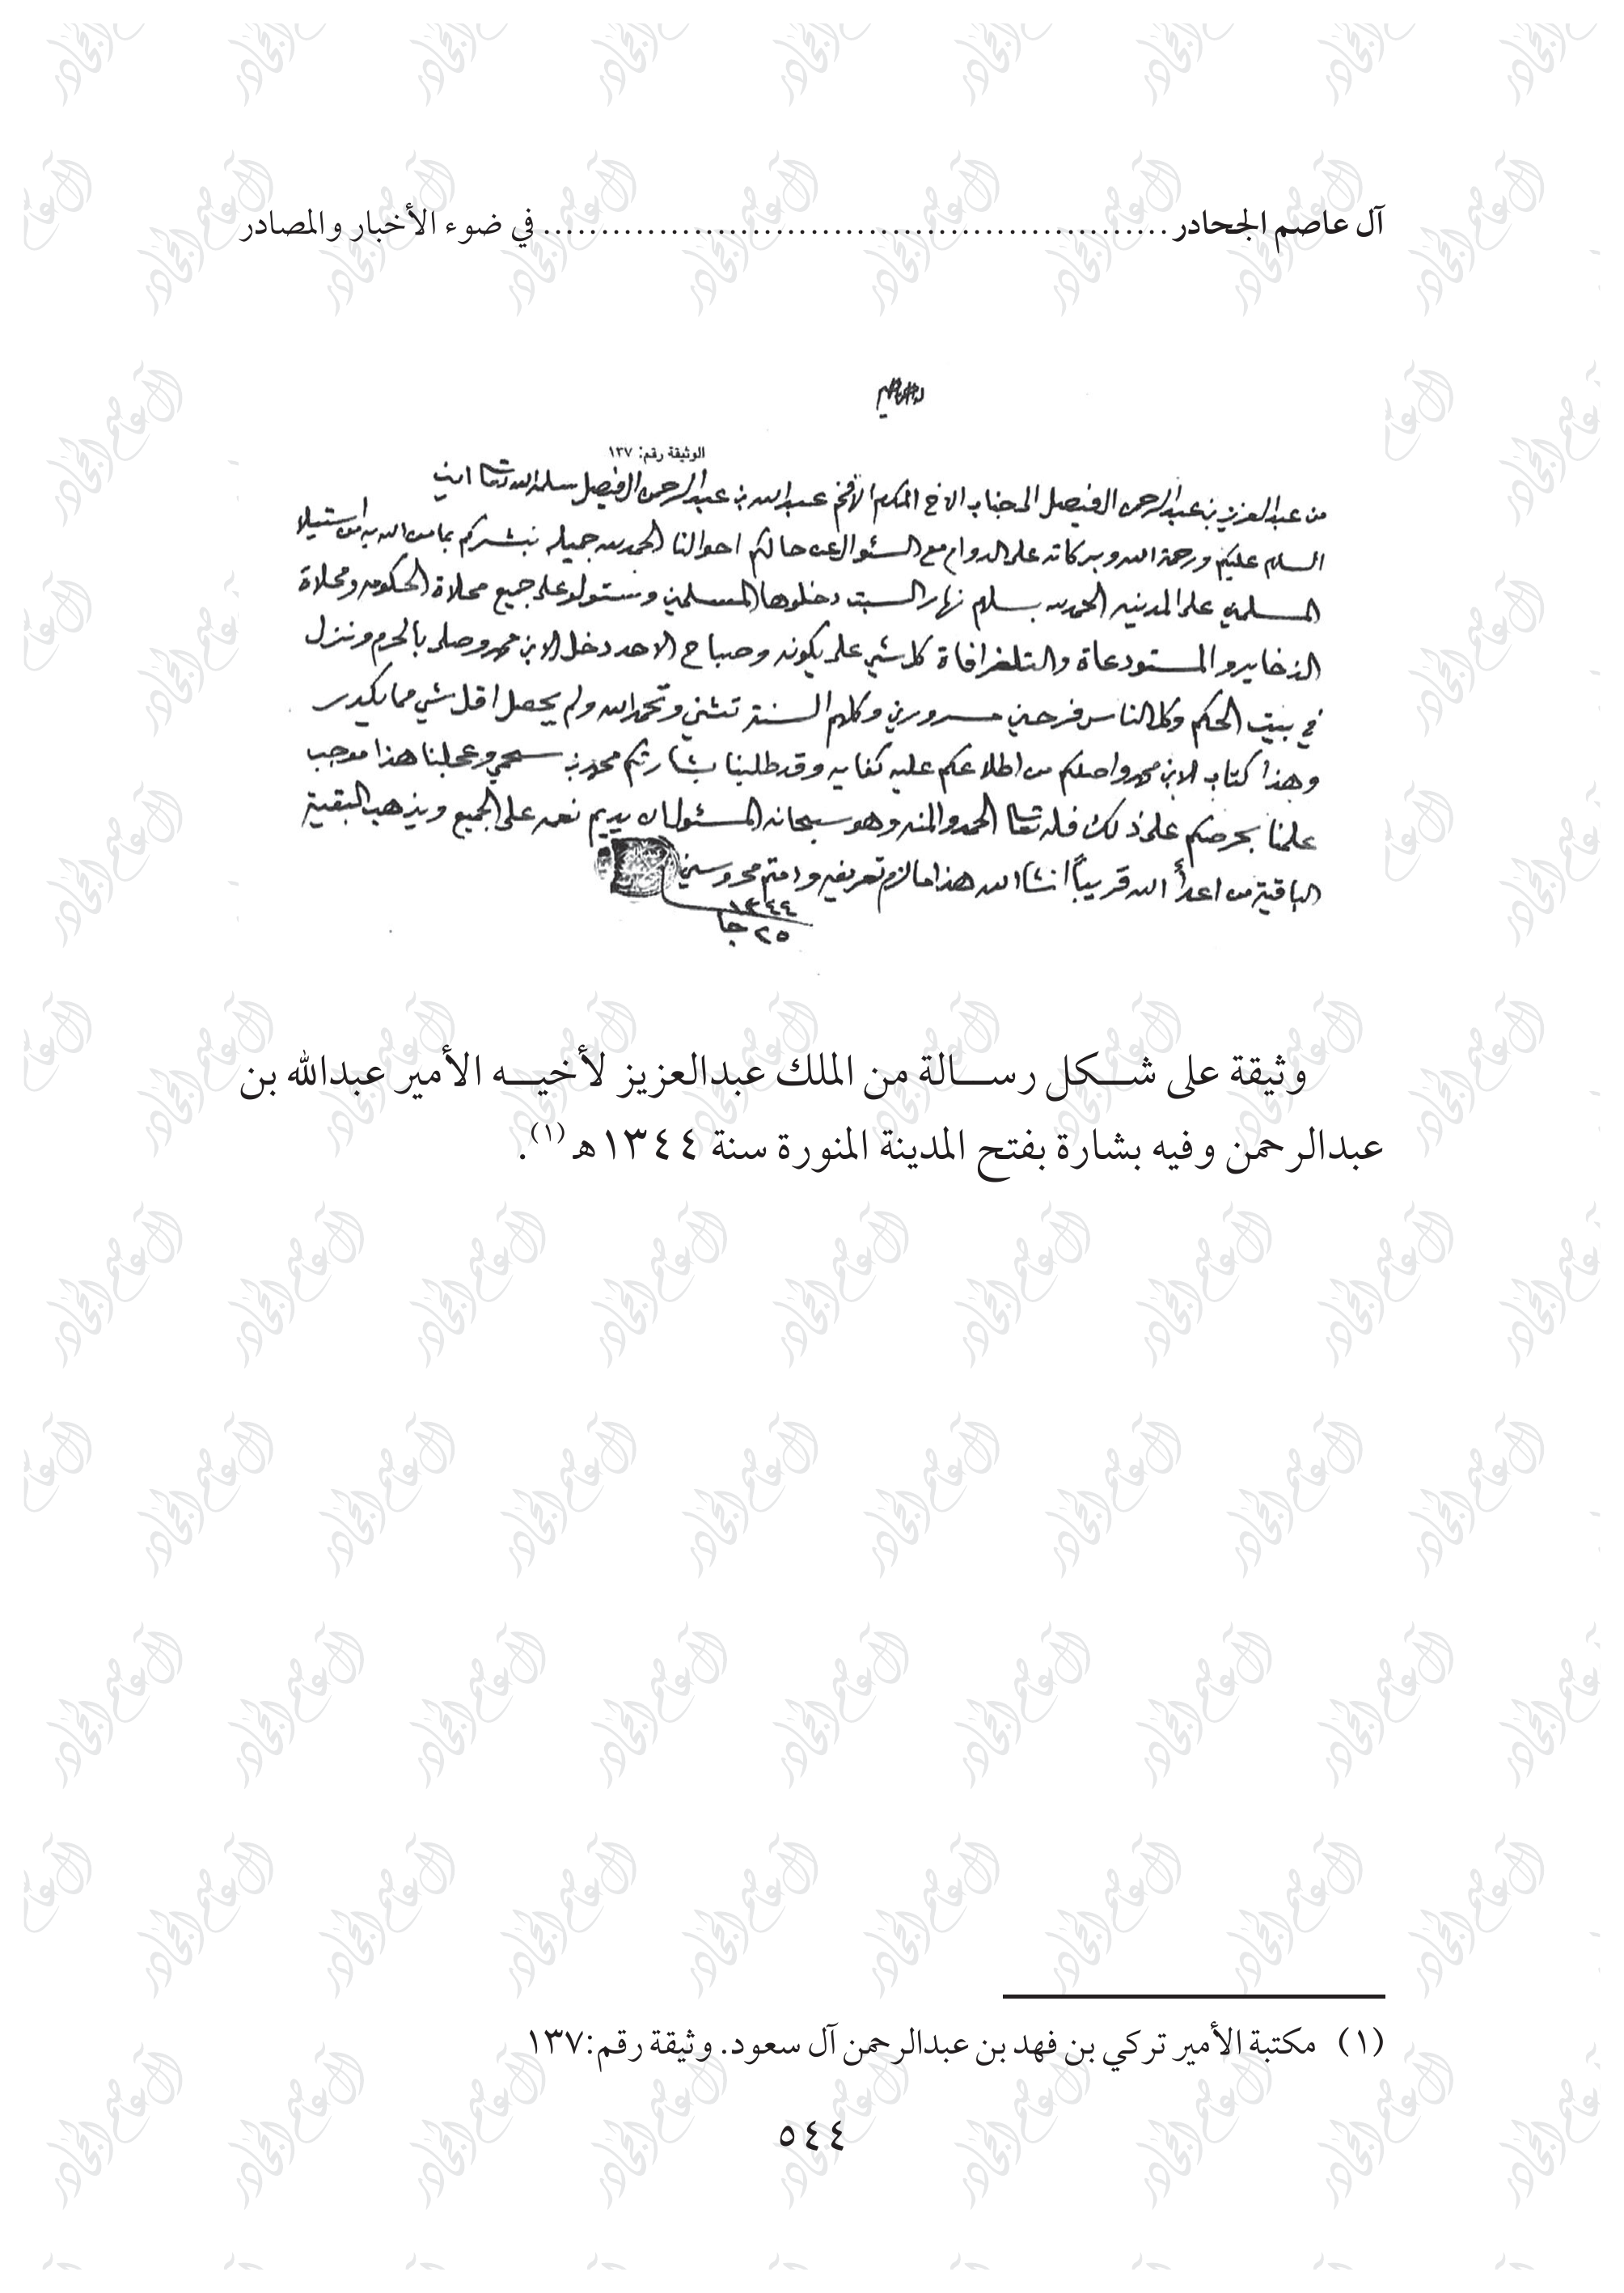 آل عاصم الجحادر ...................................................... في ضوء الأخبار والمصادر
الوثيقة رقم: ١٣٧
من عبدالعزيز بن عبدالرحمن الفيصل الى جناب الاخ المكرم الافخم عبدالله بن عبدالرحمن الفيصل سلمه الله تعالى امين
السلام عليكم ورحمة الله وبركاته على الدوام مع السئوال عن حالكم احوالنا الحمدلله جميله نبشركم بما من الله به من استيلا
المسلمين على المدينه الحمدلله بسلام نهار السبت دخلوها المسلمين وستولو على جميع محلاة الحكومه ومحلاة
الذخاير والمستودعاة والتلغرافاة كل شي على يكونه وصباح الاحد دخل الابن محمد وصلى بالحرم ونزل
في بيت الحكم وكل الناس فرحين مسرورين وكلهم السنة تثني وتحمد الله ولم يحصل اقل شي مما يكدر
وهذا كتاب الابن محمد واصلكم من اطلاعكم عليه كفايه وقد طلبنا بشارتكم محمد بن سحمي وعجلنا هذا موجب
علمنا بحرصكم على ذلك فلله تعالى الحمد والمنه وهو سبحانه المسئول ان يديم نعمه على الجميع ويذهب البقية
الباقية من اعدأ الله قريباً انشا الله هذا ما لزم تعريفه ودمتم محروسين
١٣٤٤
٢٥ جا
وثيقة على شكل رسالة من الملك عبدالعزيز لأخيه الأمير عبدالله بن
عبدالرحمن وفيه بشارة بفتح المدينة المنورة سنة ١٣٤٤هـ(١).
(١) مكتبة الأمير تركي بن فهد بن عبدالرحمن آل سعود. وثيقة رقم:١٣٧
٥٤٤